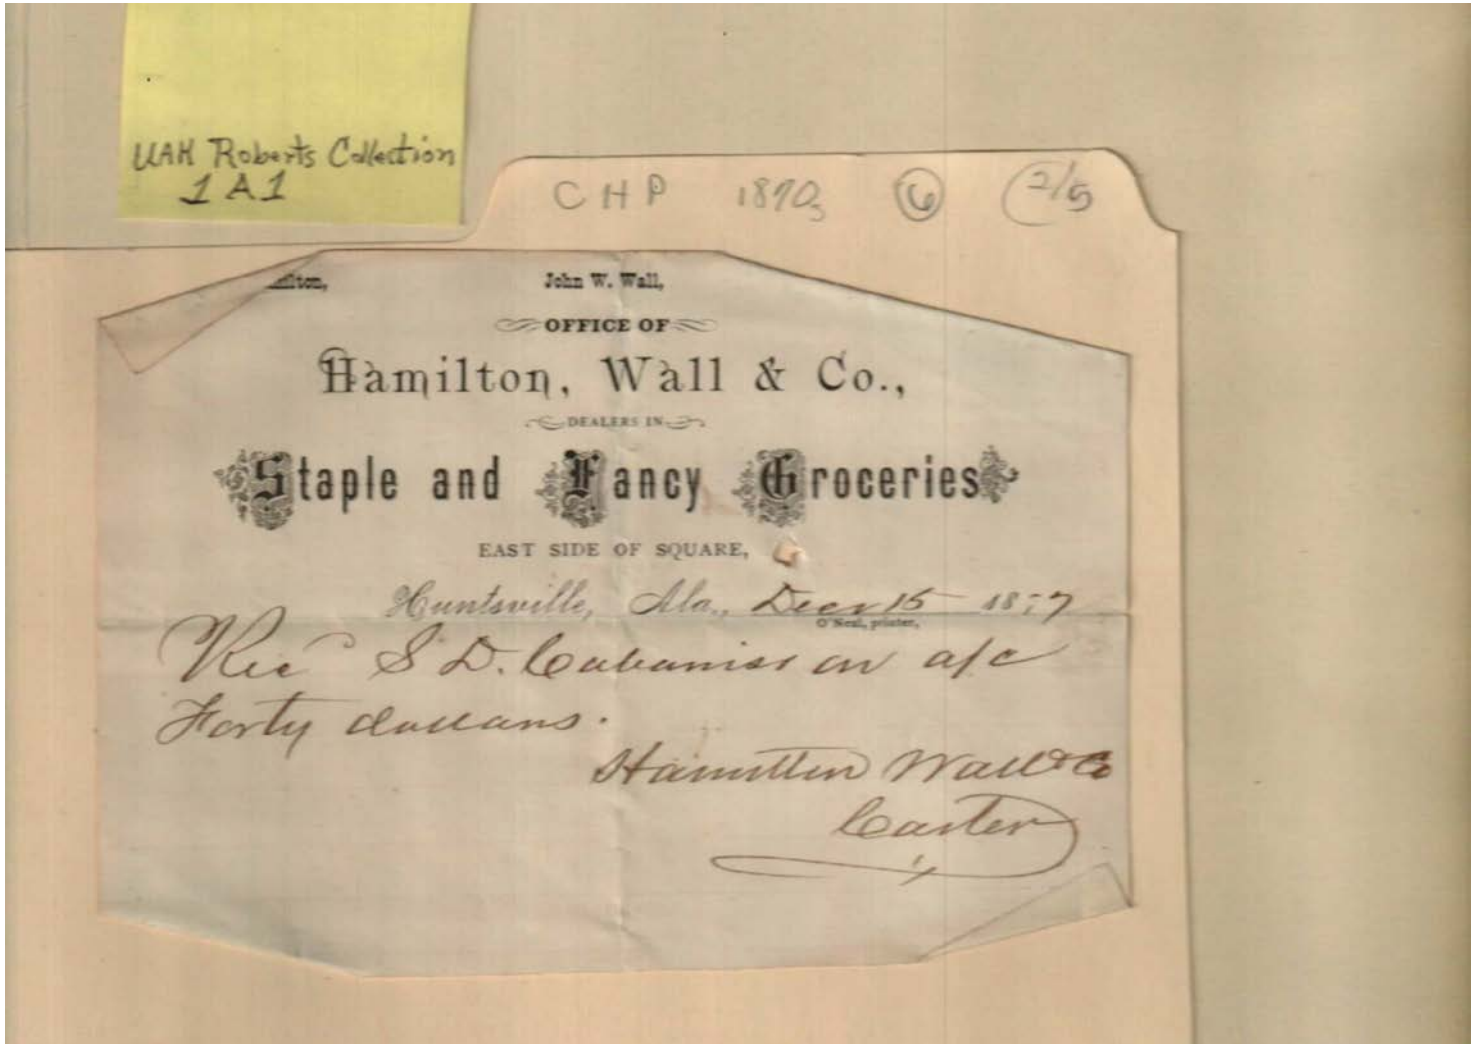 UAH Roberts Collection
1 A 1
CHP 1870s 6 2/5
milton, John W. Wall,
OFFICE OF
Hamilton, Wall & Co.,
DEALERS IN
Staple and Fancy Groceries
EAST SIDE OF SQUARE,
Huntsville, Ala., Decr 15 1877
O'Neal, printer.
Rec S D. Cabaniss on a/c
Forty dollars.
Hamilton Wall & Co
Carter